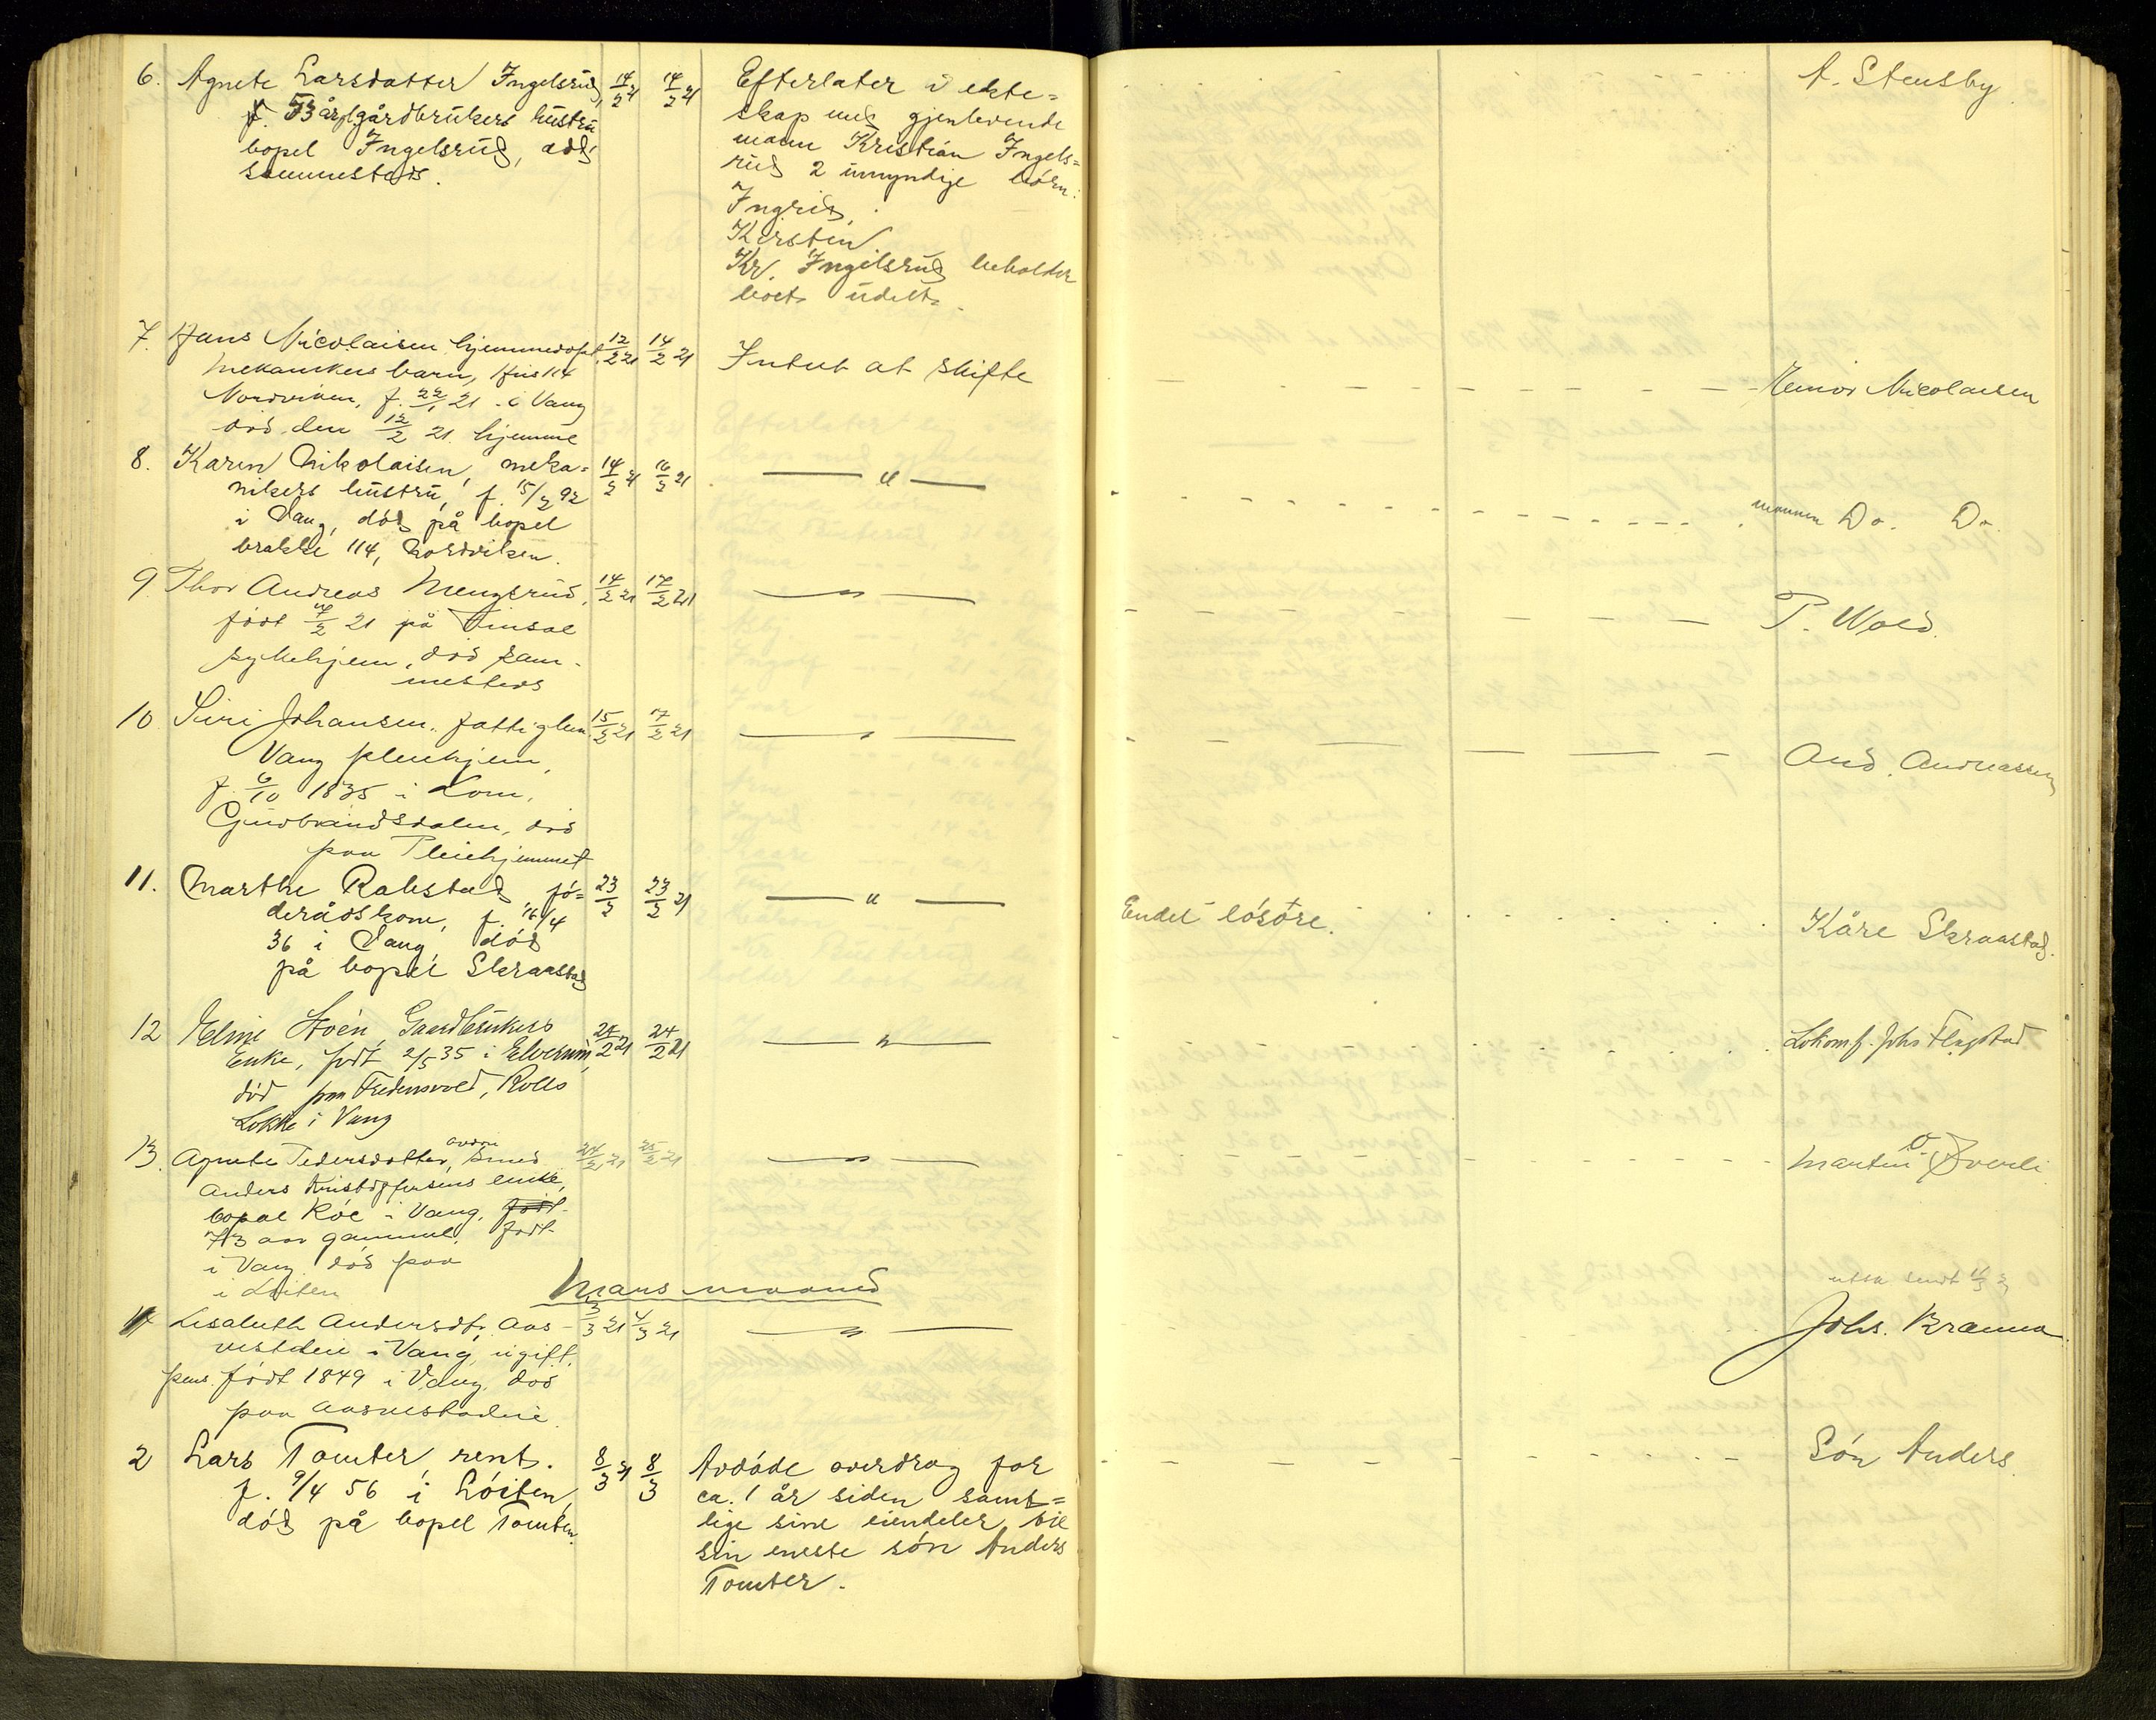 6. Agnete Larsdatter Ingelsrud, 14/2 21 14/2 21 Efterlater i ekte= A. Stensby
53 år gl gårdbrukers hustru skap med gjenlevende
bopel Ingelsrud, død mann Kristian Ingels=
sammesteds. rud 2 umyndige børn:
Ingrid,
Kirstin
Kr. Ingelsrud beholder
boet udelt.
7. Hans Nicolaisen hjemmedøpt, 12/2 21 14/2 21 Intet at skifte Nicolaisen
mekanikers barn, Hus 114
Nordviken, f. 22/1 21 i Vang
død den 12/2 21 hjemme
8. Karen Nikolaisen, meka= 14/2 21 16/2 21 — " — mannen Do. Do.
nikers hustru, f. 15/3 92
i Vang, død på bopel
brakke 114, Nordviken.
9 Thor Andreas Mengsrud, 14/2 21 17/2 21 — " — P. Wold.
født 7/2 21 på Finsal
sykehjem, død sam-
mesteds
10 Siri Johansen. fattiglem. 15/2 21 17/2 21 — " — And. Andreassen
Vang pleiehjem,
f. 6/10 1835 i Lom,
Gudbrandsdalen, død
paa Pleiehjemmet
11. Marthe Rakstad fø= 23/2 23/2 21 — " — Endel løsøre. Kåre Skraastad.
derådskone, f. 16/4
36 i Vang død
på bopel Skraastad
12 Eline Stoén, Gaardbrukers 24/2 21 24/2 21 — " — Lokomf. Johs Flagstad
Enke, født 2/5 35 i Elverum,
død paa Fredensvold, Rolls
Løkke i Vang
13. Agnete Pedersdatter, smed 24/2 21 25/2 21 — " — Martin O. Øverli
Anders Kristoffersens enke,
bopæl Roe i Vang, født
73 aar gammel. født
i Vang død paa
i Løiten
Mars maaned
1 Lisabeth Andersdtr. Aas- 3/3 21 4/3 21 — " — Johs. Brænna
vestadeie i Vang, ugift,
pens. født 1849 i Vang, død
paa Aasvestadeie.
2 Lars Tomter rent. 8/3 21 8/3 Avdøde overdrog for Søn Anders.
f. 9/4 56 i Løiten, ca. 1 år siden samt=
død på bopel Tomter. lige sine eiendeler til
sin eneste søn Anders
Tomter.